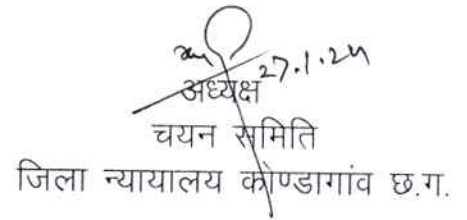 27.1.24
अध्यक्ष
चयन समिति
जिला न्यायालय कोण्डागांव छ.ग.